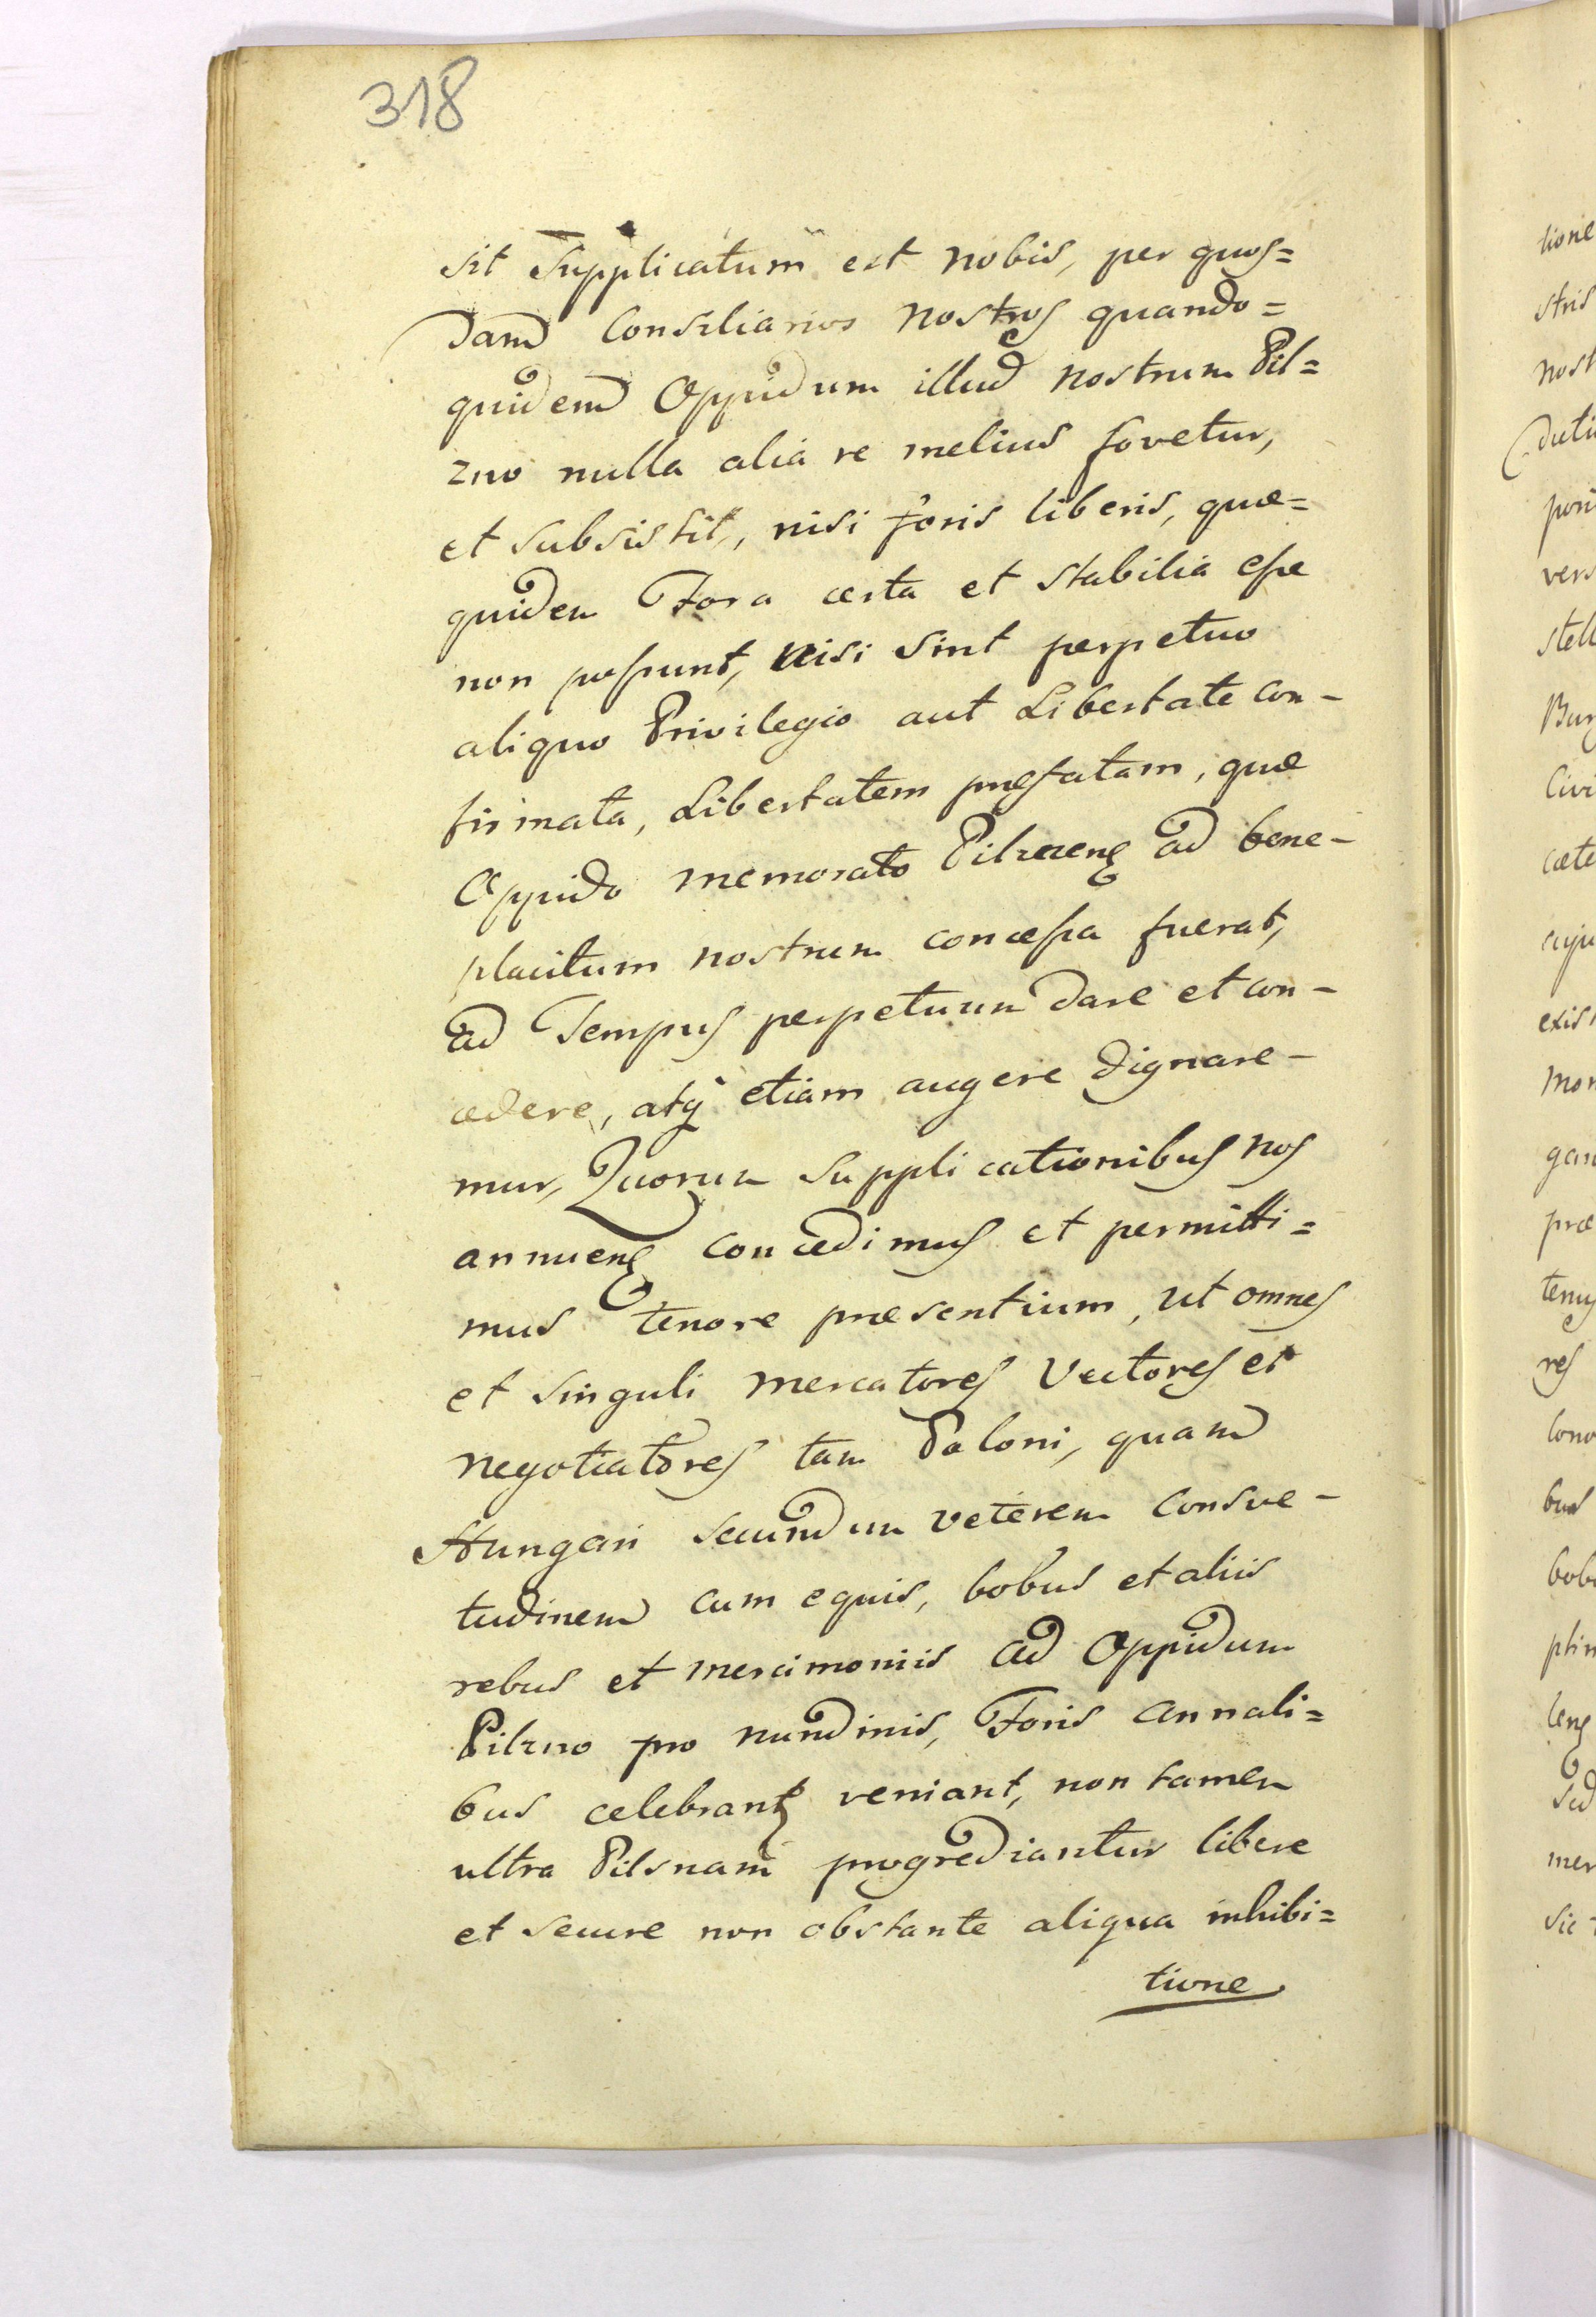 318
sit Supplicatum est nobis, per quos=
dam Consiliarios nostros quando=
quidem Oppidum illud nostrum Pil=
zno nulla alia re melius fovetur,
et subsistit, nisi foris liberis, quæ=
quidem Fora certa et stabilia esse
non possunt, nisi sint perpetuo
aliquo Privilegio aut Libertate con-
firmata, Libertatem præfatam, quæ
Oppido memorato Pilzneng ad bene-
placitum nostrum concessa fuerat,
ad Tempus perpetuum dare et con-
cedere, atq etiam augere dignare-
mur, Quorum supplicationibus nos
annueng concedimus et permitti=
mus tenore præsentium, ut omnes
et singuli mercatores Vectores et
negotiatores tam Poloni, quam
Hungari secundum veterem consve-
tudinem cum equis, bobus et aliis
rebus et mercimoniis ad Oppidum
Pilzno pro nundinis, Foris annali=
bus celebrant veniant, non tamen
ultra Pilsnam progrediantur libere
et secure non obstante aliqua inhibi=
tione
tione
stris
nost
pori
vers
stell
Bur
Civi
cæte
cuju
exis
mon
gan
præ
tenus
res
cono
bus
bob
ptin
leng
sed
mer
sic